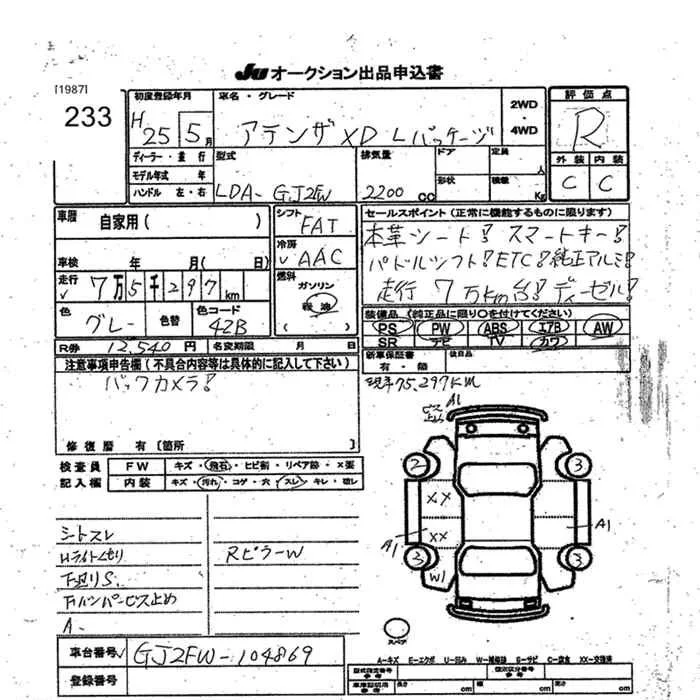 JU オークション出品申込書
[1987]
233
初度登録年月
H 25 5月
車名・グレード
アテンザ XD Lパッケージ
2WD
・
4WD
評価点
R
外装 内装
C C
ディーラー・並行
モデル年式 年
ハンドル 左・右
型式
LDA-GJ2FW
排気量
2200 cc
ドア
形状
定員 人
積載 Kg
車歴
自家用( )
シフト
FAT
セールスポイント(正常に機能するものに限ります)
本革シート! スマートキー!
パドルシフト! ETC! 純正アルミ!
走行 7万km台! ディーゼル!
車検 年 月( 日)
冷房
AAC
走行
7万5千297km
燃料
ガソリン
軽油
色
グレー
色替
色コード
42B
装備品(純正品に限り○を付けてください)
PS PW ABS エアB AW
SR ナビ TV カワ
R券 12,540円
名変期限 月 日
新車保証書
有・無
後日品
注意事項申告欄(不具合内容等は具体的に記入して下さい)
バックカメラ!
現車75,297KM
A1
ビス
止め
修復歴 有〔箇所
検査員
記入欄
FW キズ・飛石・ヒビ割・リペア跡・×要
内装 キズ・汚れ・コゲ・穴・スレ・キレ・切レ
2 3
XX
XX
A1 A1
3 3
W1
シートスレ
Hライトくもり
下廻りS.
Fバンパービス止め
A-
RピラーW
スペア
車台番号
GJ2FW-104869
登録番号
A-キズ E-エクボ U-凹み W-補修跡 S-サビ C-腐食 XX-交換済
型式指定番号
参考
類別区分番号
参考
車庫証明用
参考
長さ cm
幅 cm
高さ cm